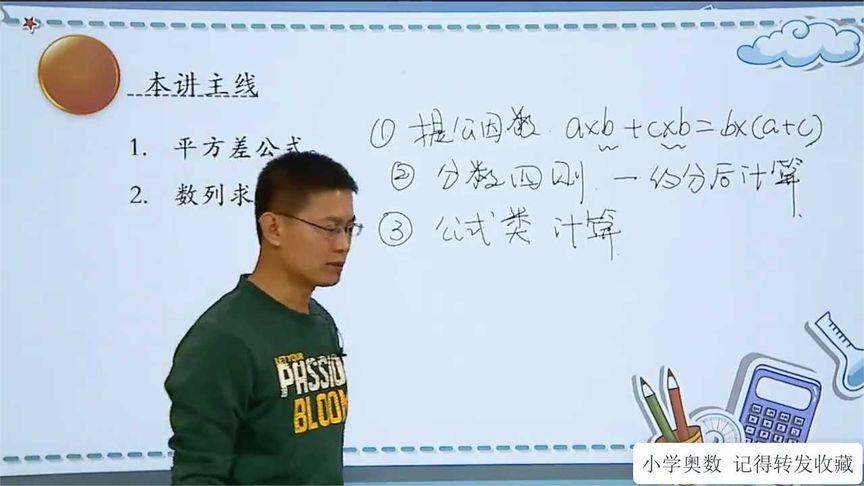 本讲主线
1. 平方差公式
2. 数列求
① 提公因数 a×b+c×b=b×(a+c)
② 分数四则 — 约分后计算
③ 公式类 计算
LET YOUR
PASSION
BLOOM
小学奥数 记得转发收藏